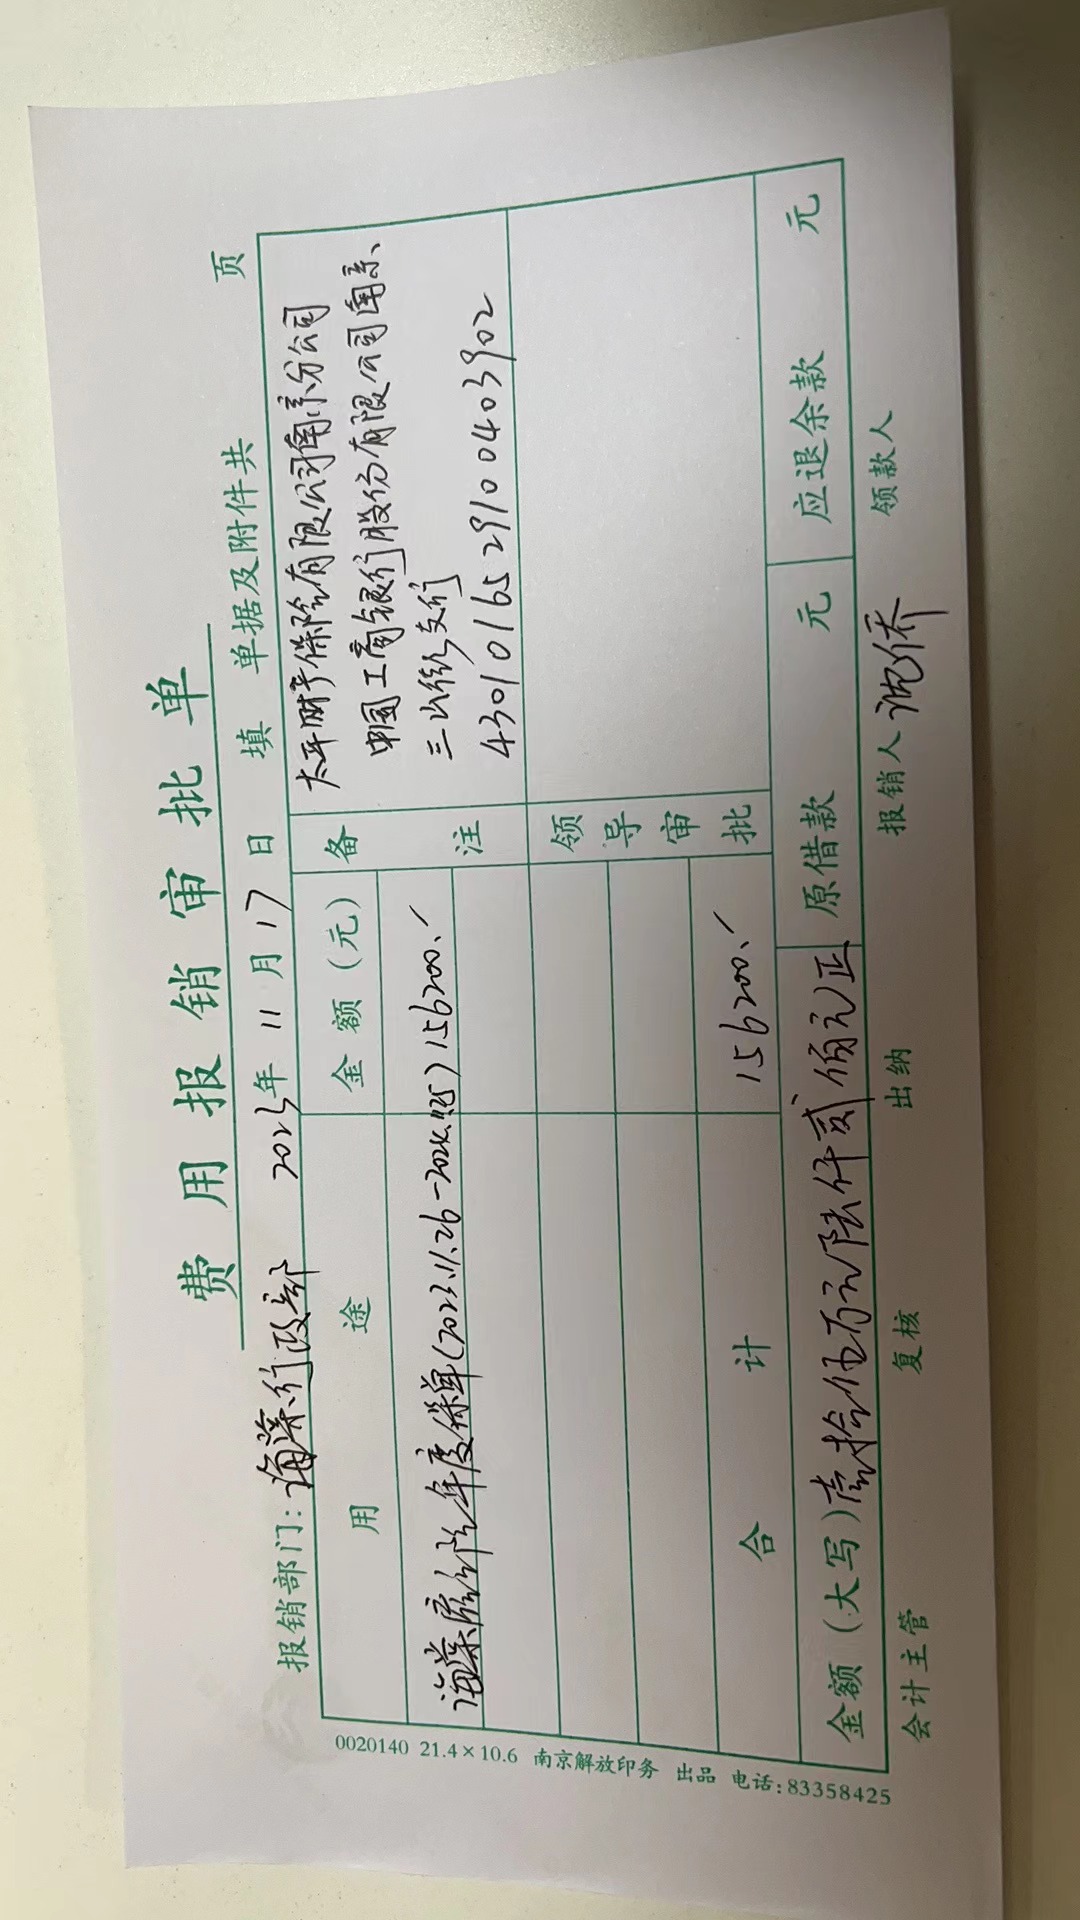 费用报销审批单
报销部门：海棠行政部 2023年11月17日 填 单据及附件共 页
用途 金额（元） 备注
太平财产保险有限公司南京分公司
中国工商银行股份有限公司南京、
三山街支行
4301016529100403902
年度保单(2023.11.26-2024.11.25) 156200.
领导审批
合计 156200.
金额（大写）壹拾伍万元陆仟贰佰元正 原借款 元 应退余款 元
会计主管 复核 出纳 报销人 领款人
0020140 21.4×10.6 南京解放印务 出品 电话：83358425